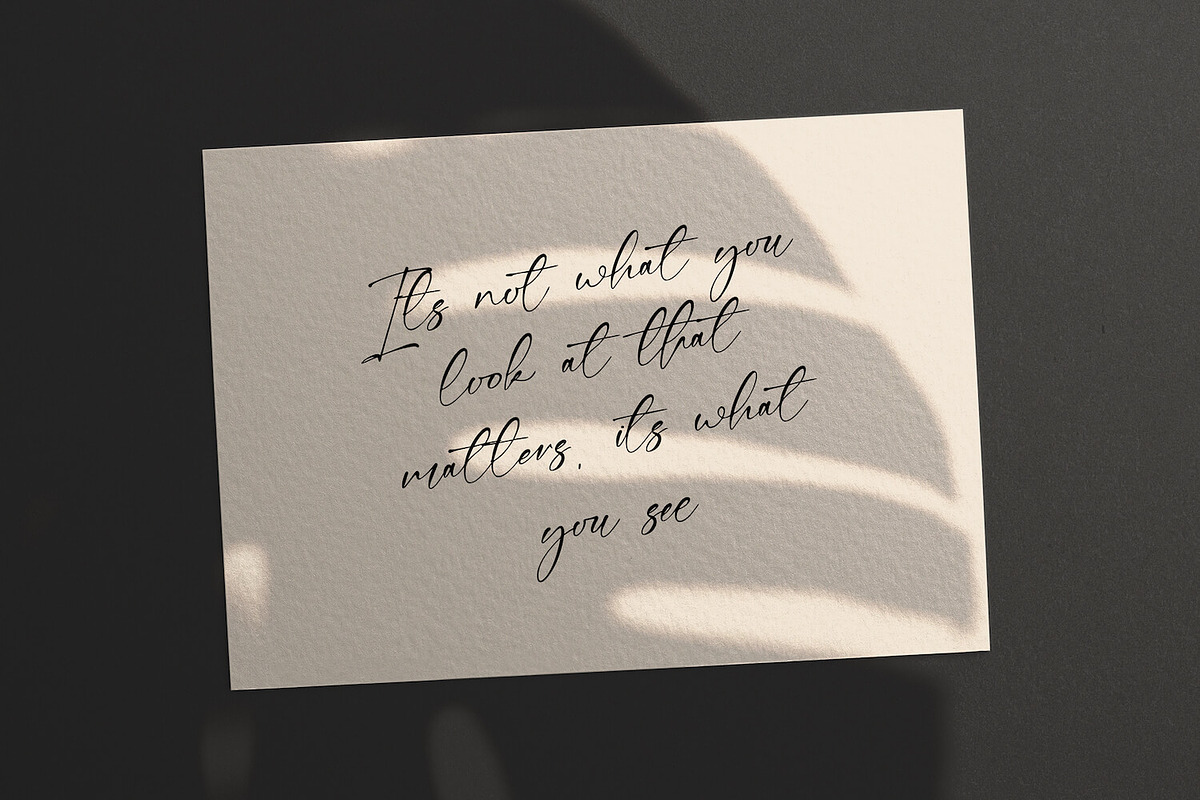 Its not what you
look at that
matters, its what
you see